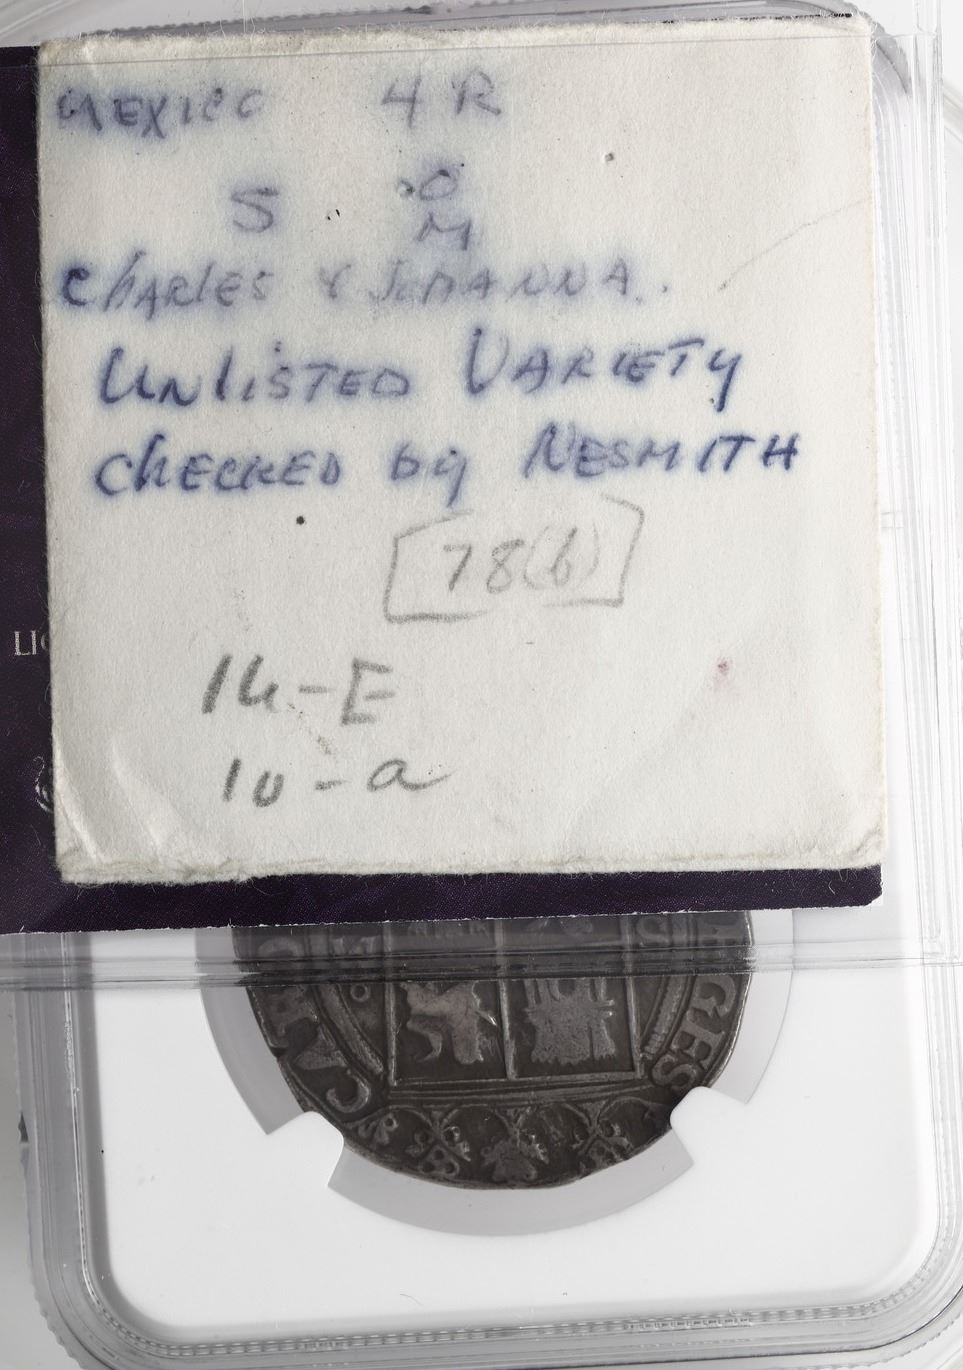 MEXICO 4 R
S .. .O
M
CHARLES & JOHANNA..
UNLISTED VARIETY
CHECKED by NESMITH
[78(b)]
LIO
14-E
10-a
M S
REGES